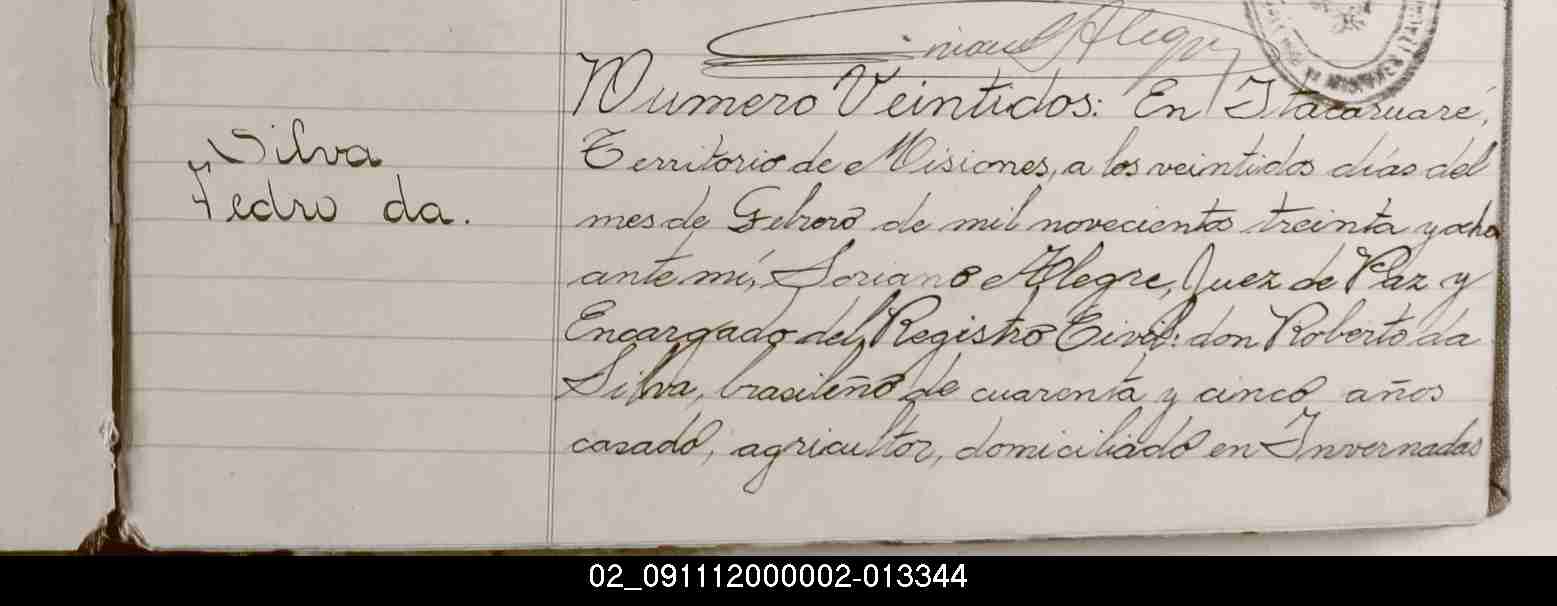 Alegre
Numero Veintidos: En Itacaruaré,
Silva
Pedro da.
Territorio de Misiones, a los veintidos días del
mes de Febrero de mil novecientos treinta y ocho
ante mí, Soriano Alegre, Juez de Paz y
Encargado del Registro Civil: don Roberto da
Silva, brasileño de cuarenta y cinco años
casado, agricultor, domiciliado en Invernadas
02_091112000002-013344